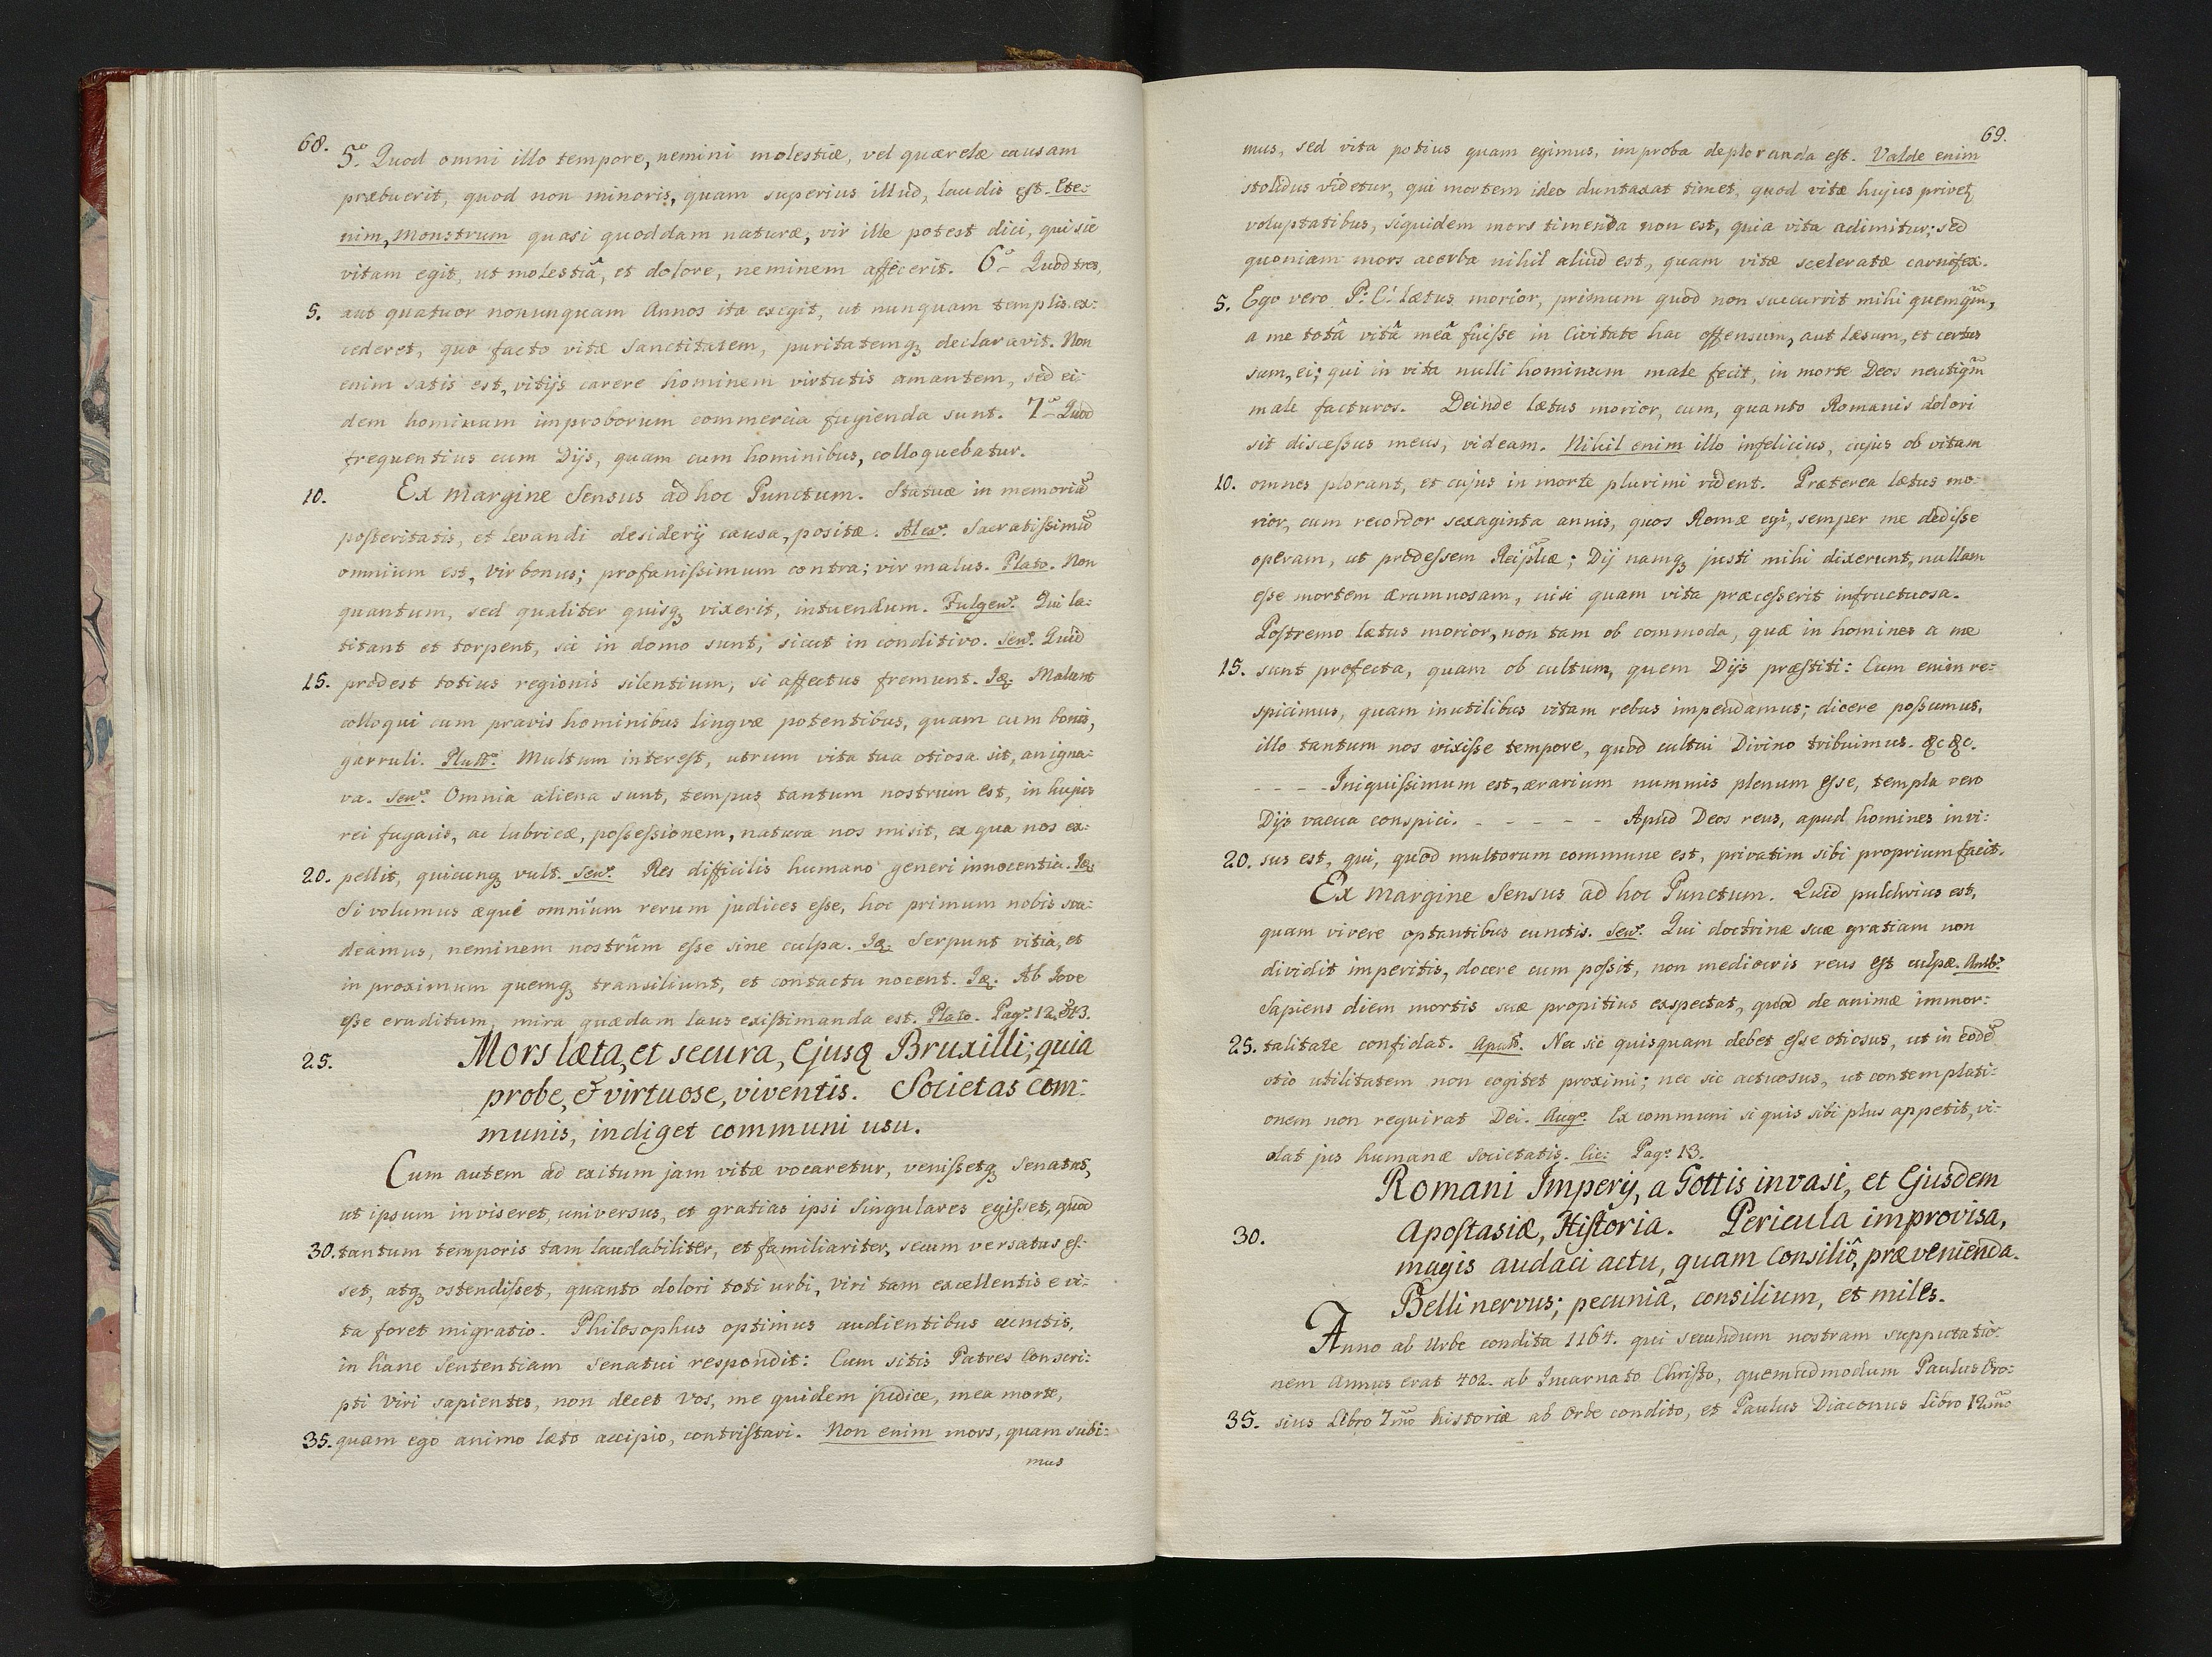 68.
5.º Quod omni illo tempore, nemini molestiæ, vel quærelæ causam
præbuerit, quod non minoris, quam superius illud, laudis est. Ete:
nim, monstrum quasi quoddam naturæ, vir ille potest dici, qui sic
vitam egit, ut molestiâ, et dolore, neminem affecerit. 6.º Quod tres,
5. aut quatuor nonunquam Annos ita exegit, ut nunquam templis ex:
cederet, quo facto vitæ Sanctitatem, puritatemqʒ declaravit. Non
enim satis est, vitijs carere hominem virtutis amantem, sed ei:
dem hominum improborum commercia fugienda sunt. 7.º Quod
frequentius cum Dijs, quam cum hominibus, colloquebatur.
10. Ex margine Sensus ad hoc Punctum. Statuæ in memoriã
posteritatis, et levandi desiderij causa, positæ. Alex. Sacratissimũ
omnium est, Vir bonus; profanissimum contra; vir malus. Plato. Non
quantum, sed qualiter quisqʒ vixerit, intuendum. Fulgen. Qui la:
titant et torpent, sic in domo sunt, sicut in conditivo. Sen. Quid
15. prodest totius regionis silentium, si affectus fremunt. Iđ. Malunt
colloqui cum pravis hominibus lingvæ potentibus, quam cum bonis,
garruli. Plutt. Multum interest, utrum vita tua otiosa sit, an igna:
va. Sen. Omnia aliena sunt, tempus tantum nostrum est, in hujus
rei fugacis, ac lubricæ, possessionem, natura nos misit, ex qua nos ex:
20. pellit, quicunqʒ vult. Sen. Res difficilis humano generi innocentia. Iđ.
Si volumus æqui omnium rerum judices esse, hoc primum nobis sva:
deamus, neminem nostrûm esse sine culpa. Iđ. Serpunt vitia, et
in proximum quemqʒ transiliunt, et contactu nocent. Iđ. Ab Jove
esse eruditum, mira quædam laus existimanda est. Plato. Pag. 12. & 13.
25. Mors læta, et secura, Ejusqʒ Bruxilli; quia
probe, & virtuose, viventis. Societas com:
munis, indiget communi usu.
Cum autem ad exitum jam vitæ vocaretur, venissetqʒ Senatus,
ut ipsum inviseret, universus, et gratias ipsi Singulares egisset, quod
30. tantum temporis tam laudabiliter, et familiariter, secum versatus es:
set, atqʒ ostendisset, quanto dolori toti urbi, viri tam excellentis e vi:
ta foret migratio. Philosophus optimus audientibus cunctis,
in hanc Sententiam Senatui respondit: Cum sitis Patres Conscri:
pti viri sapientes, non decet Vos, me quidem judice, mea morte,
35. quam ego animo læto accipio, contristari. Non enim mors, quam subi:
mus
69.
mus, sed vita potius quam egimus, improba deploranda est. Valde enim
stolidus videtur, qui mortem ideo duntaxat timet, quod vitæ hujus privet
voluptatibus, siquidem mors timenda non est, quia vita adimitur; sed
quoniam mors acerba nihil aliud est, quam vitæ sceleratæ carnifex.
5. Ego vero P. C. lætus morior, primum quod non succurrit mihi quemqũm,
a me totâ vitâ meâ fuisse in Civitate hac offensum, aut læsum, et certus
sum, ei; qui in vita nulli hominum male fecit, in morte Deos neutiqũm
male facturos. Deinde lætus morior, cum, quanto Romanis dolori
sit discessus meus, videam. Nihil enim illo infelicius, cujus ob vitam
10. omnes plorant, et cujus in morte plurimi rident. Præterea lætus mo:
rior, cum recordor sexaginta annis, quos Romæ egi, semper me dedisse
operam, ut prodessem Reip̃licæ; Dij namqʒ justi mihi dixerunt, nullam
esse mortem ærumnosam, nisi quam vita præcesserit infructuosa.
Postremo lætus morior, non tam ob commoda, quæ in homines a me
15. sunt profecta, quam ob cultum, quem Dijs præstiti: Cum enim re:
spicimus, quam inutilibus vitam rebus impendamus; dicere possumus,
illo tantum nos vixisse tempore, quod cultui Divino tribuimus. &c &c.
- - - - Iniquissimum est, ærarium nummis plenum esse, templa vero
Dijs vacua conspici. - - - - - Apud Deos reus, apud homines invi:
20. sus est, qui, quod multorum commune est, privatim sibi proprium facit.
Ex margine Sensus ad hoc Punctum. Quid pulchrius est,
quam vivere optantibus cunctis. Sen. Qui doctrinæ suæ gratiam non
dividit imperitis, docere cum possit, non mediocris reus est culpæ. Amb.
Sapiens diem mortis suæ propitius exspectat, quod de animæ immor:
25. talitate confidat. Apul. Nec sic quisquam debet esse otiosus, ut in eodẽ
otio utilitatem non cogitet proximi; nec sic actuosus, ut contemplati:
onem non requirat Dei. Aug. Ex communi si quis sibi plus appetit, vi:
olat jus humanæ societatis. Cic: Pag. 13.
Romani Imperij, a Gottis invasi, et Ejusdem
30. Apostasiæ, Historia. Pericula improvisa,
magis audaci actu, quam consiliô, prævenienda.
Belli nervus; pecunia, consilium, et miles.
Anno ab Urbe condita 1164. qui secundum nostram supputatio:
nem Annus erat 402. ab Incarnato Christo, quemadmodum Paulus Oro:
35. sius Libro 7mo historiæ ab Orbe condito, et Paulus Diaconus Libro 12mo